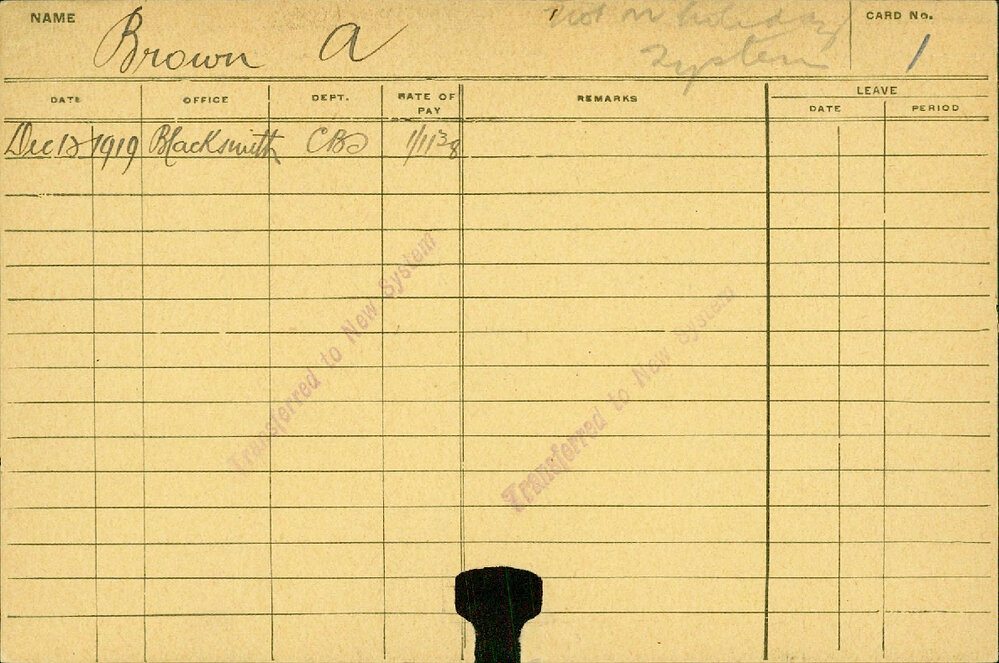 NAME Brown A Not on holiday system CARD No. 1
DATE OFFICE DEPT. RATE OF PAY REMARKS LEAVE
DATE PERIOD
Dec 12 1919 Blacksmith
Transferred to New System
Transferred to New System